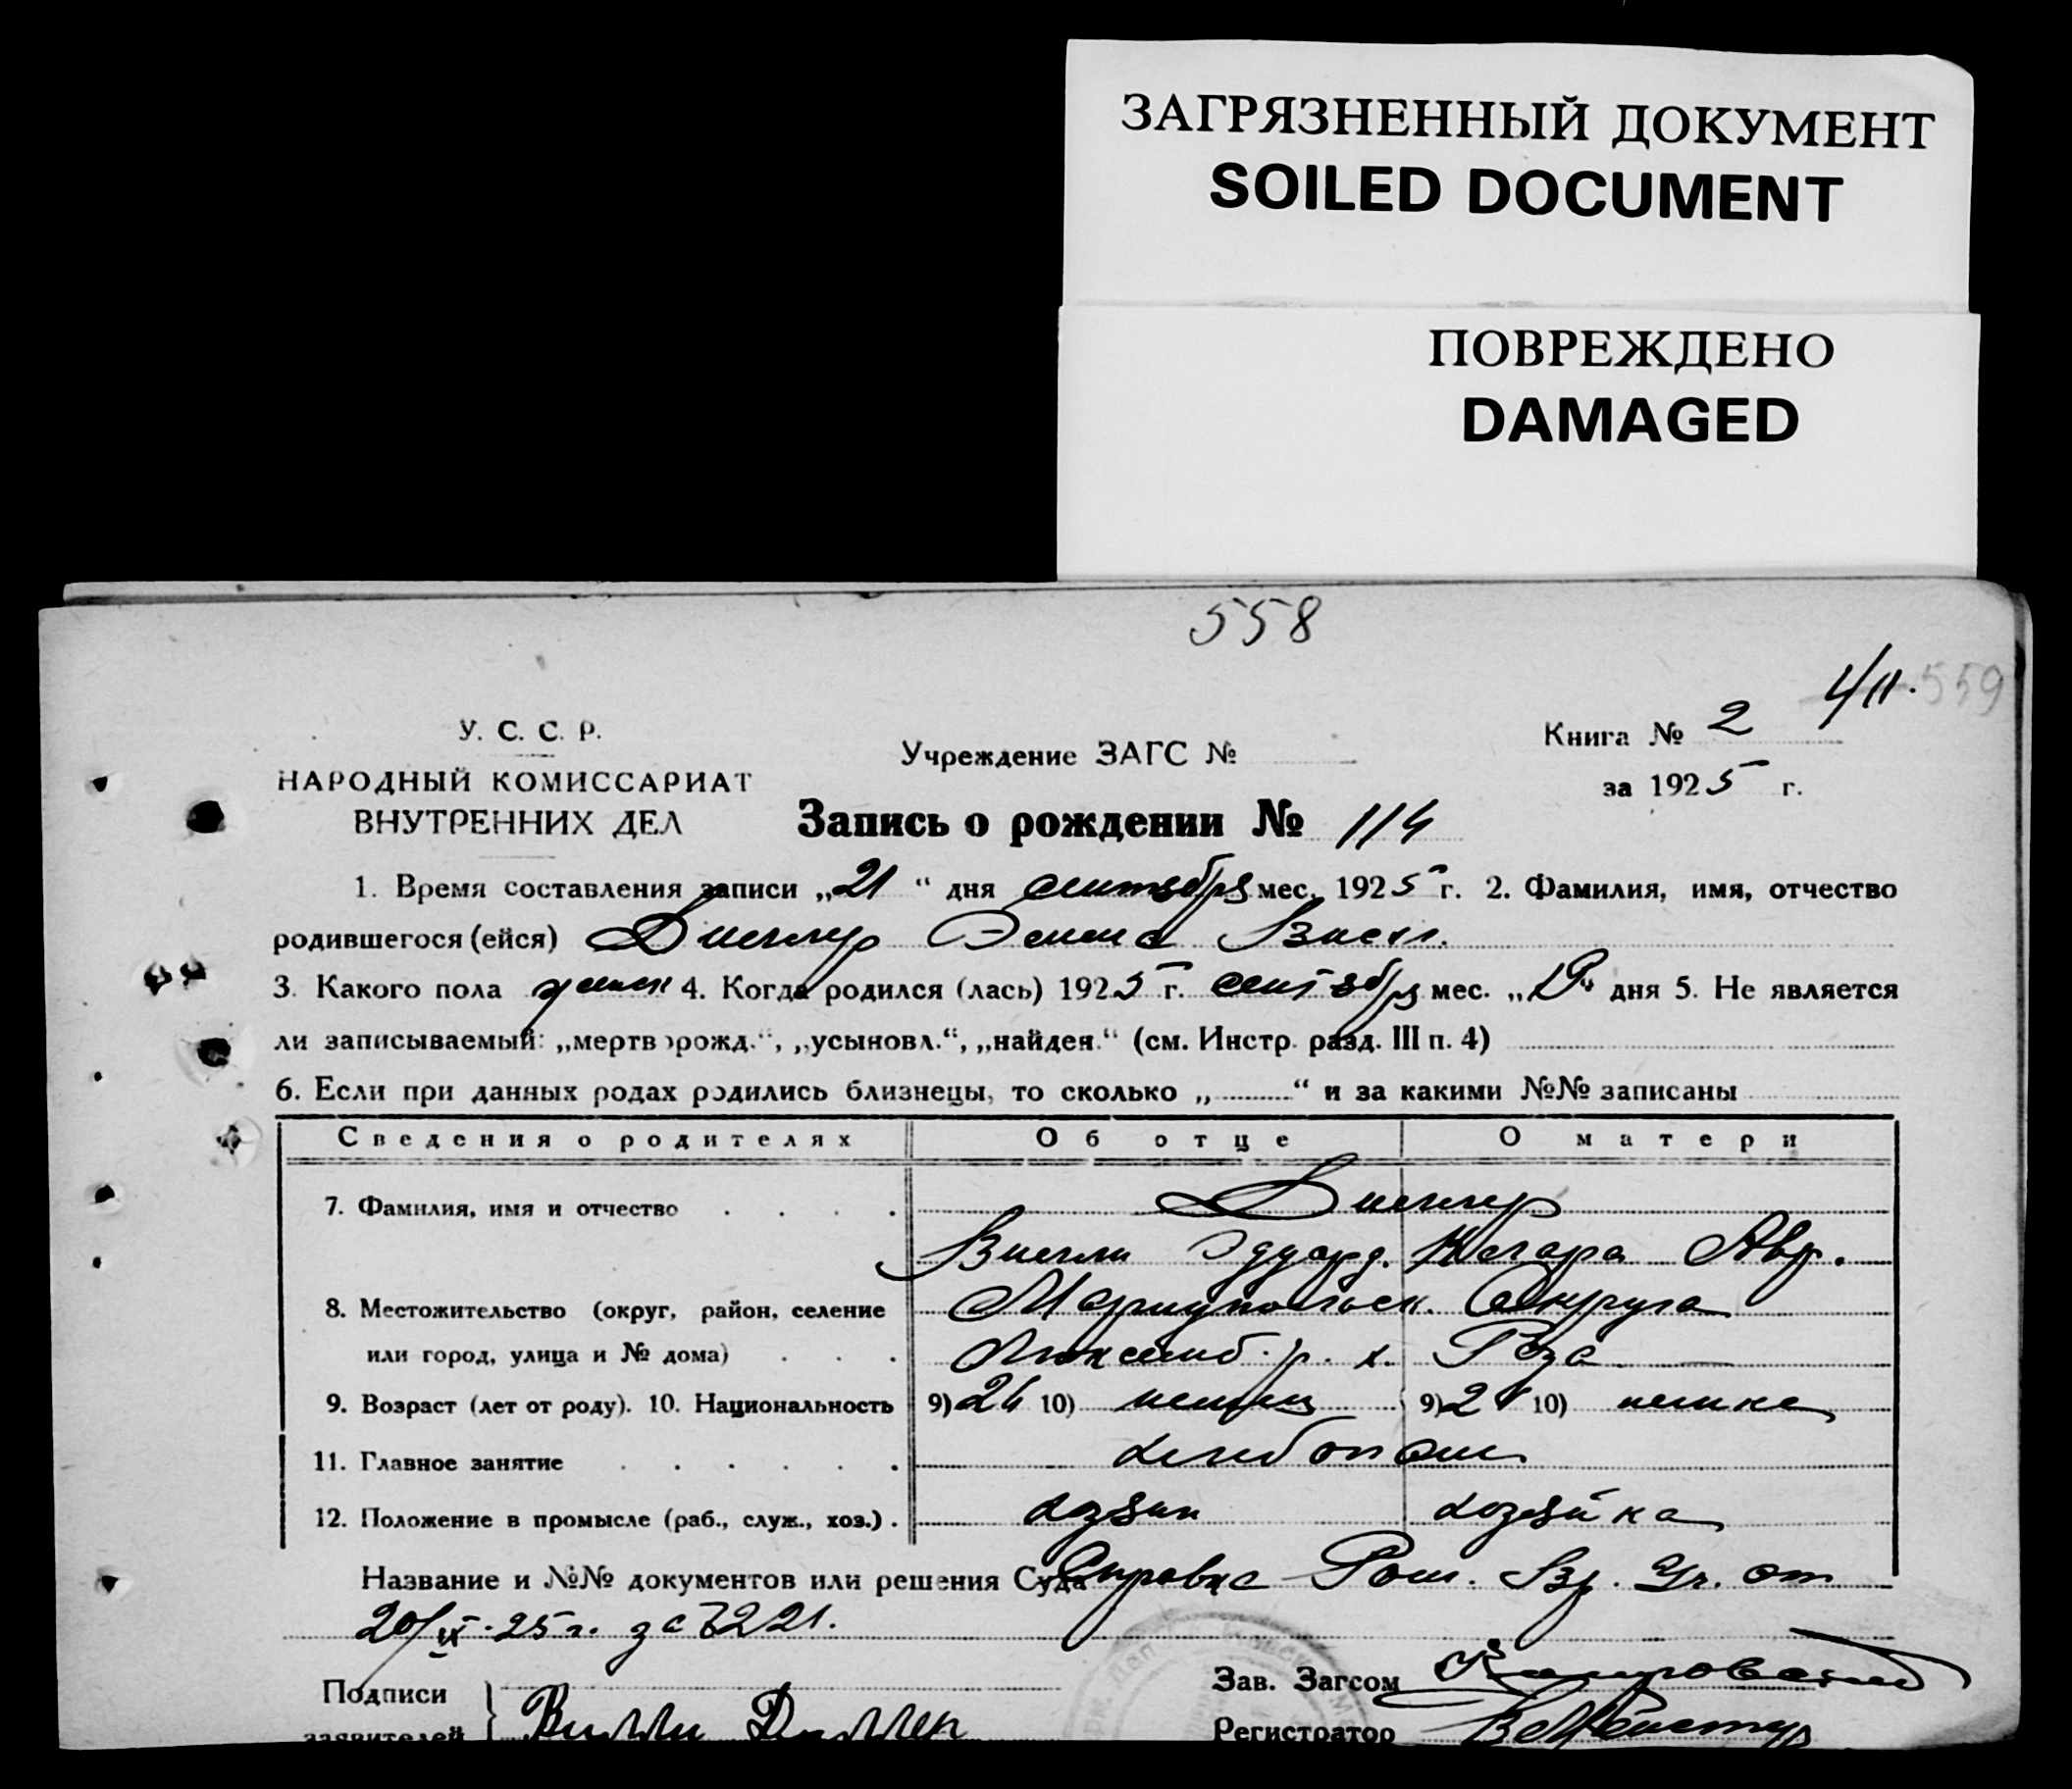 ЗАГРЯЗНЕННЫЙ ДОКУМЕНТ
SOILED DOCUMENT
ПОВРЕЖДЕНО
DAMAGED
558
4/11. 559
У. С. С. Р.
НАРОДНЫЙ КОМИССАРИАТ
ВНУТРЕННИХ ДЕЛ
Учреждение ЗАГС №
Книга № 2
за 1925 г.
Запись о рождении № 114
1. Время составления записи „21“ дня сентября мес. 1925 г. 2. Фамилия, имя, отчество
родившегося (ейся)
3. Какого пола женск 4. Когда родился (лась) 1925 г. сентября мес. дня 5. Не является
ли записываемый: „мертворожд.“, „усыновл.“, „найден.“ (см. Инстр. разд. III п. 4)
6. Если при данных родах родились близнецы, то сколько „ “ и за какими №№ записаны
Сведения о родителях Об отце О матери
7. Фамилия, имя и отчество
Вилли Эдуард. Клара Авг.
8. Местожительство (округ, район, селение Мариупольск. Округа
или город, улица и № дома) Люксемб. р. х. Роза
9. Возраст (лет от роду). 10. Национальность 9) 24 10) немец 9) 2 10) немка
11. Главное занятие хлебопаш
12. Положение в промысле (раб., служ., хоз.) хозяин хозяйка
Название и №№ документов или решения Суда Справка от
20/IX-25 г. за 221.
Подписи
заявителей Вилли Диллер
Зав. Загсом
Регистратор